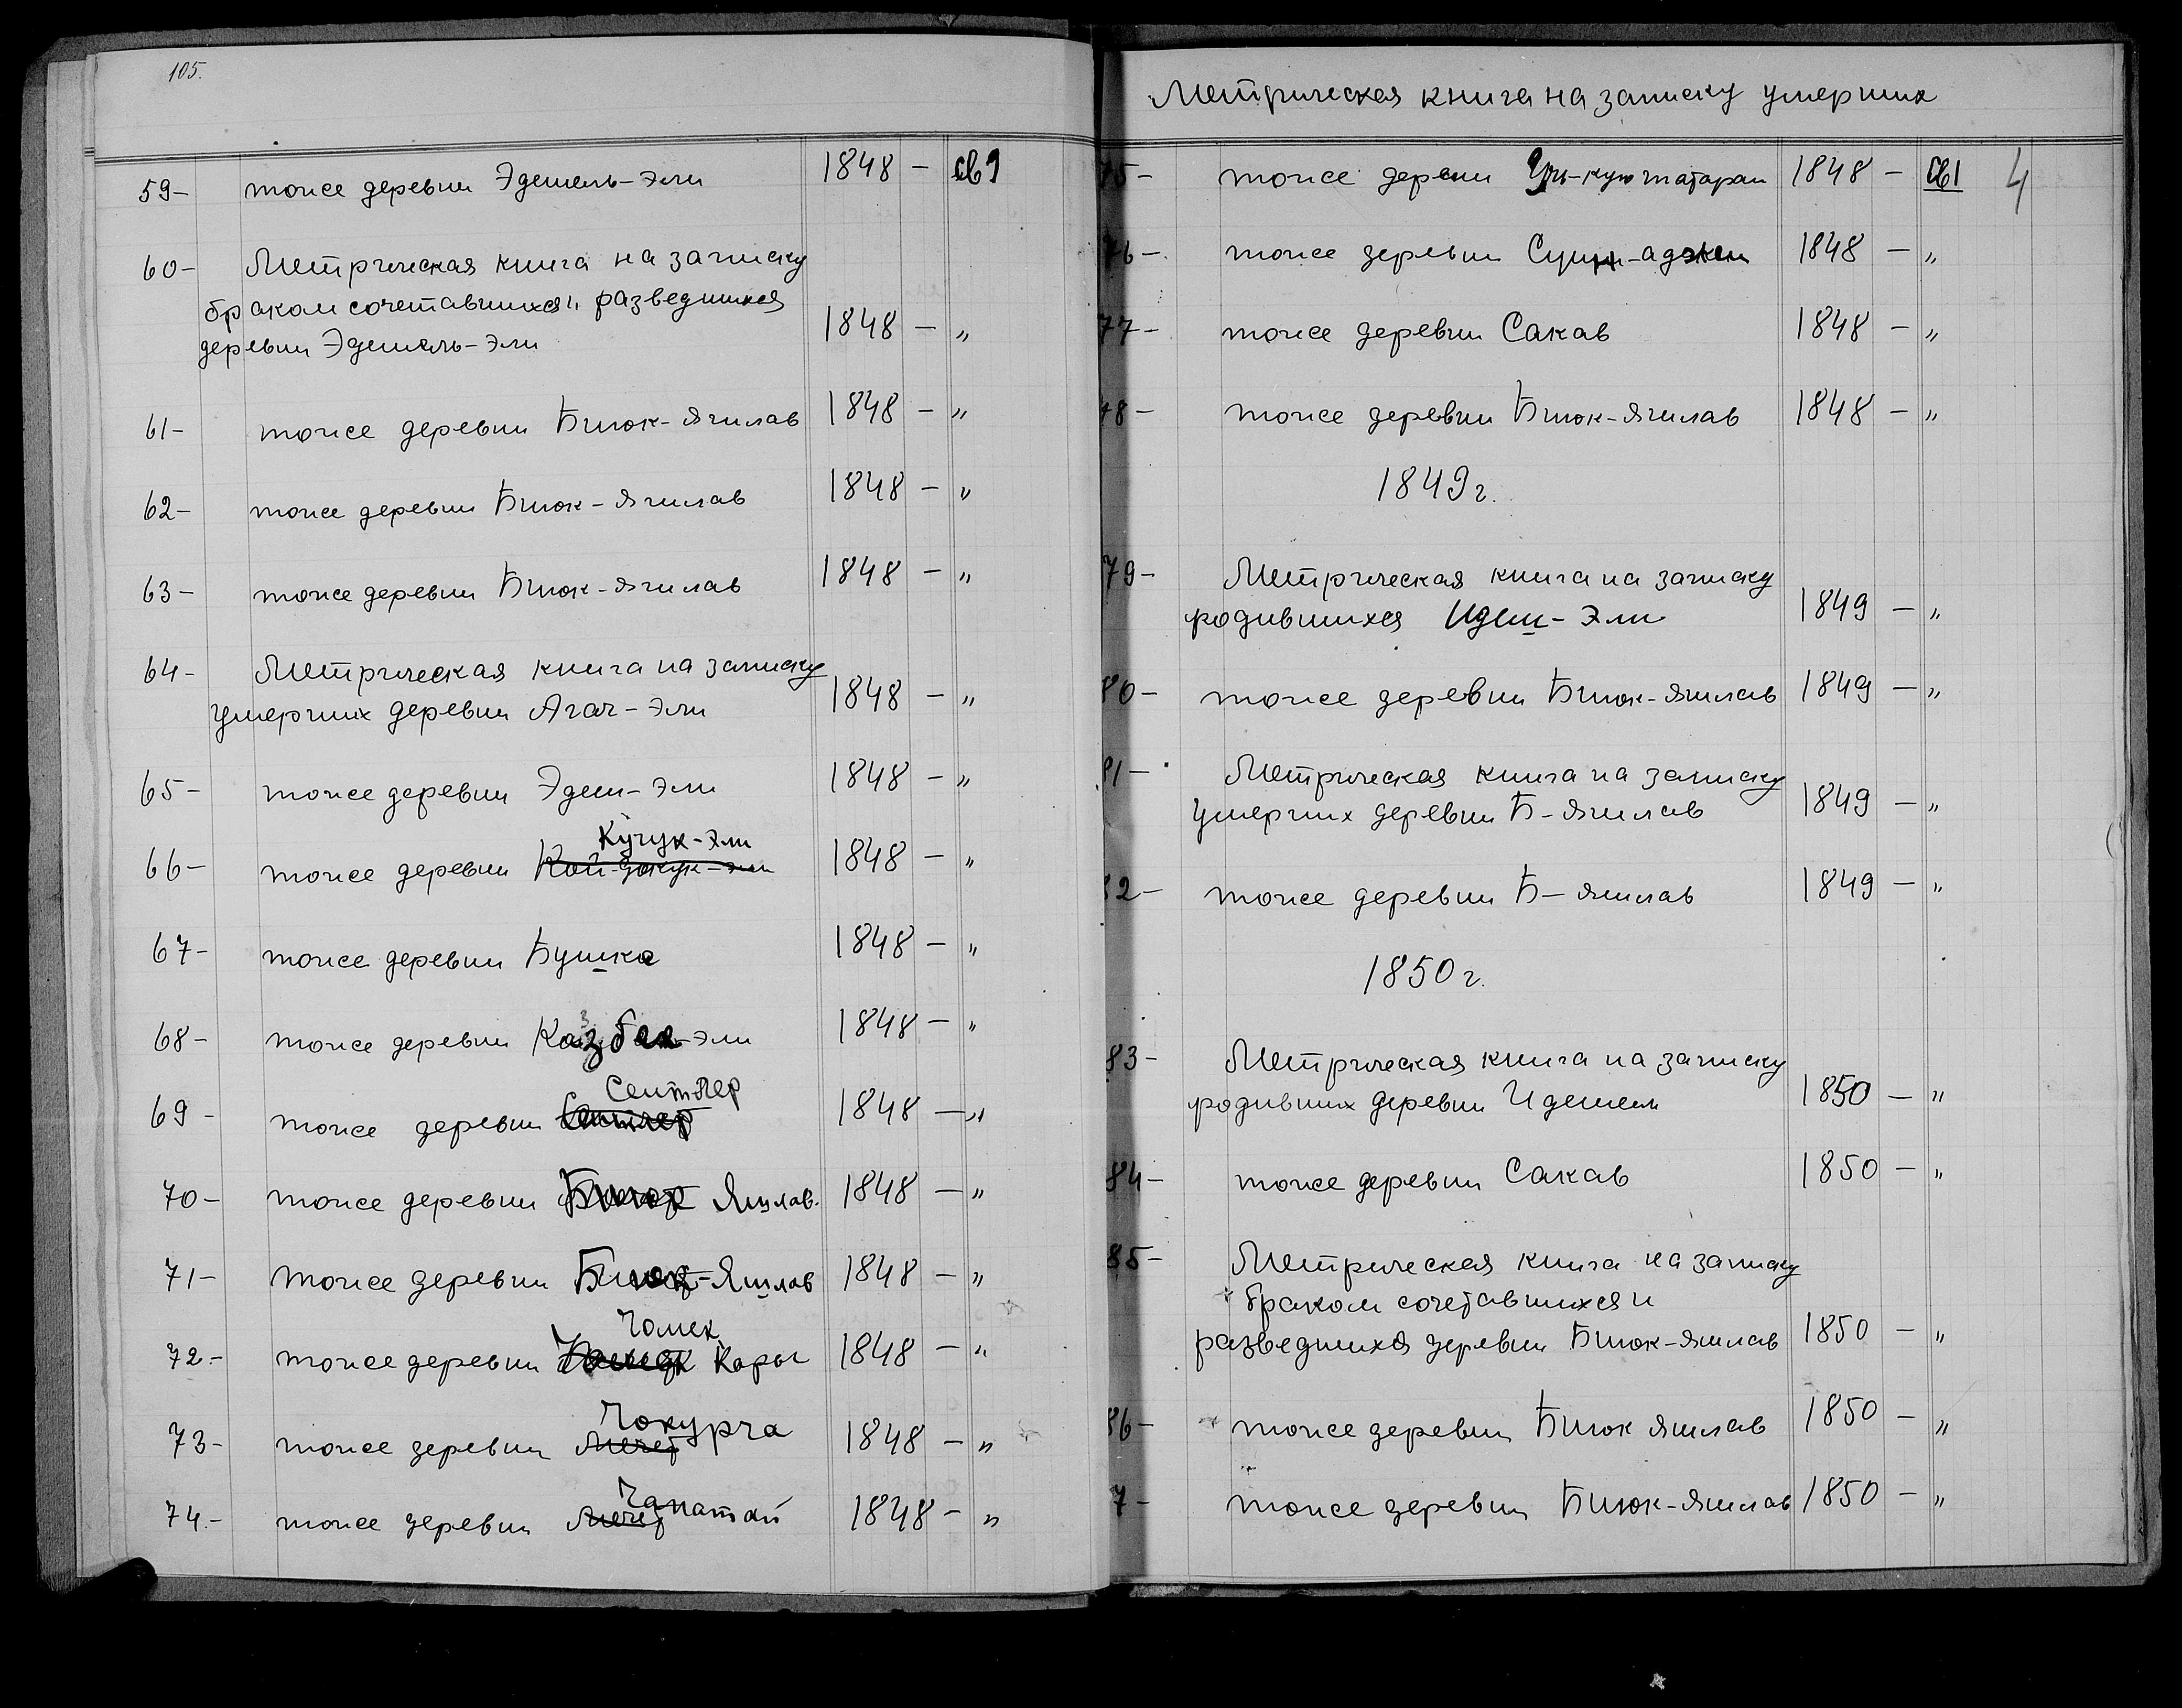 105.
59- тоже деревни Эдешель-эли 1848 - св 9
60- Метрическая книга на записку
браком сочетавшихся и разведшихся
деревни Эдешель-эли 1848 - "
61- тоже деревни Биюк-Яшлав 1848 - "
62- тоже деревни Биюк-Яшлав 1848 - "
63- тоже деревни Биюк-Яшлав 1848 - "
64- Метрическая книга на записку
умерших деревни Агач-эли 1848 - "
65- тоже деревни Эдеш-эли 1848 - "
Кучук-эли
66- тоже деревни 1848 - "
67- тоже деревни Бушка 1848 - "
68- тоже деревни Казбек-эли 1848 - "
Сентлер
69- тоже деревни 1848 - "
70- тоже деревни Биюк Яшлав. 1848 - "
71- тоже деревни Биюк-Яшлав 1848 - "
Чомек
72- тоже деревни Кары 1848 - "
Чокурча
73- тоже деревни 1848 - "
Чапатай
74.- тоже деревни 1848 - "
Метрическая книга на записку умерших
75- тоже дерени Учь-кую татаран 1848 - св1 4
76- тоже деревни 1848 - "
77- тоже деревни Сакав 1848 - "
78- тоже деревни Биюк-Яшлав 1848 - "
1849г.
79- Метрическая книга на записку
родившихся Идеш-эли 1849 - "
80- тоже деревни Биюк-яшлав 1849 - "
81- Метрическая книга на записку
умерших деревни Б-яшлав 1849 - "
82- тоже деревни Б-яшлав 1849 - "
1850г.
83- Метрическая книга на записку
родивших деревни Идешель 1850 - "
84- тоже деревни Сакав 1850 - "
85- Метрическая книга на записку
браком сочетавшихся и
разведшихся деревни Биюк-яшлав 1850 - "
86- тоже деревни Биюк яшлав 1850 - "
7- тоже деревни Биюк-яшлав 1850 - "